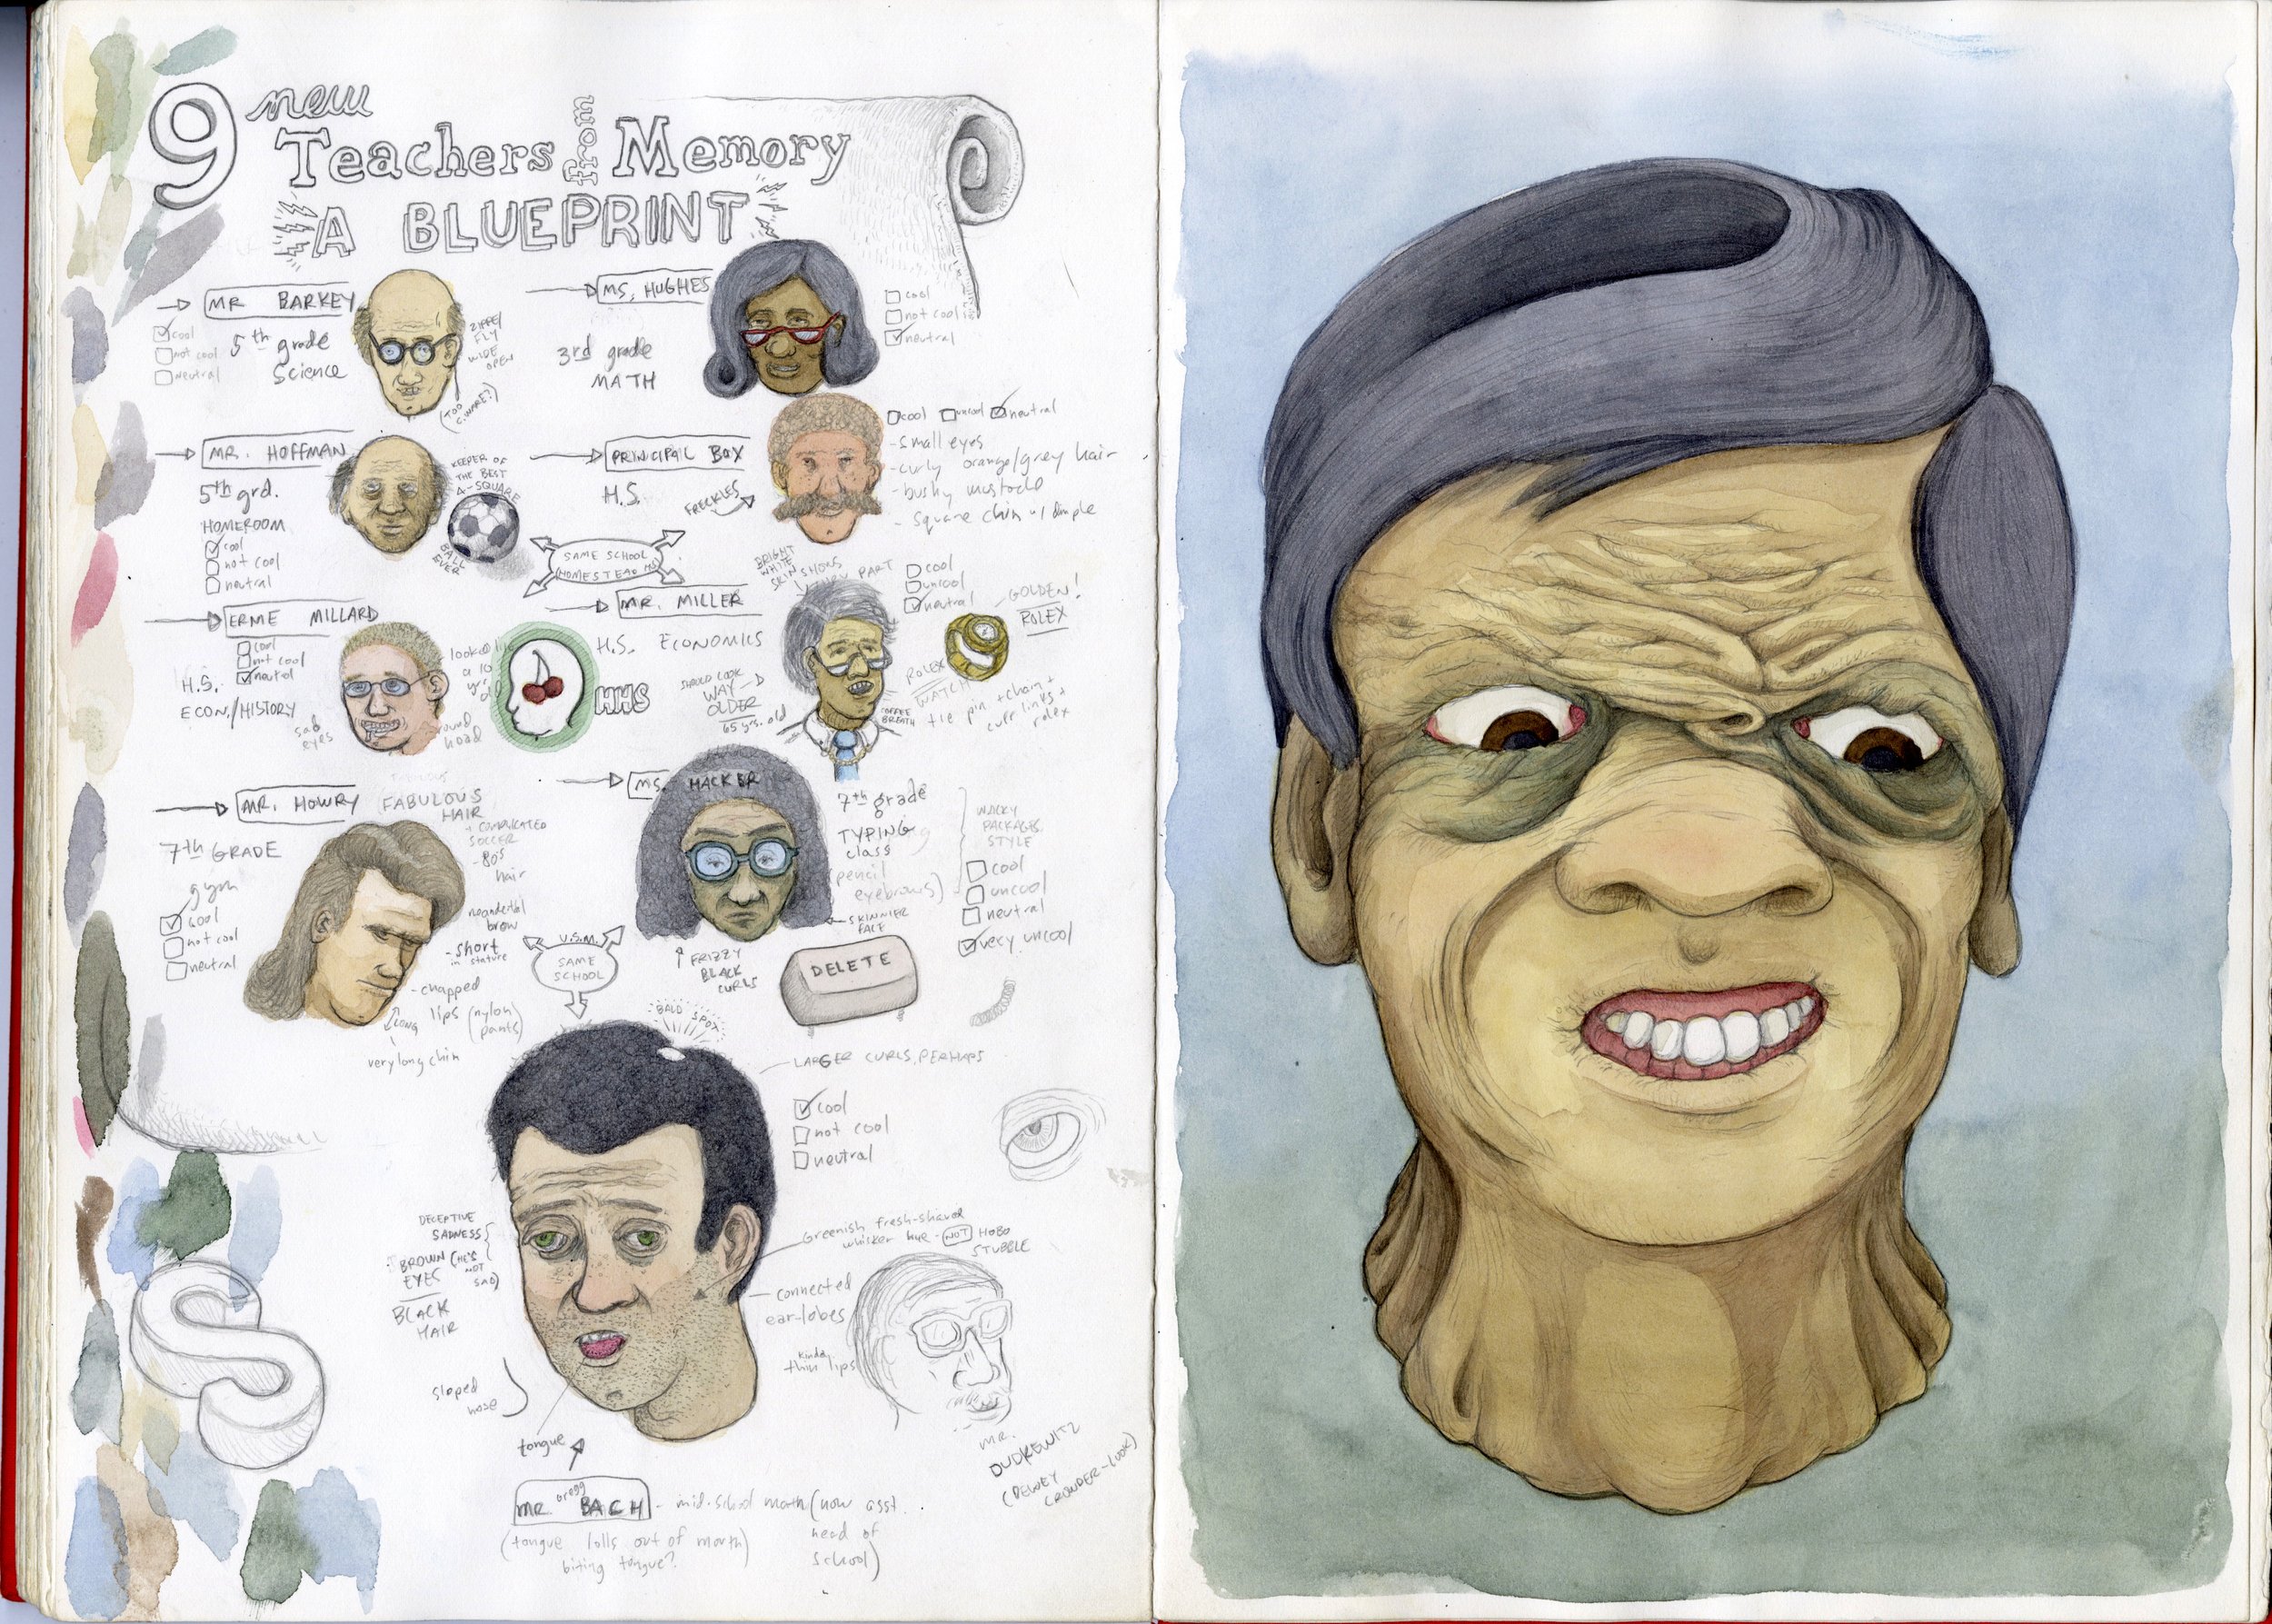 9 new
Teachers from Memory
A BLUEPRINT
MR BARKEY
cool
not cool
neutral
5th grade
Science
ZIPPER/
FLY
WIDE
OPEN
(TOO
MS. HUGHES
3rd grade
MATH
cool
not cool
neutral
MR. HOFFMAN
5th grd.
HOMEROOM
cool
not cool
neutral
KEEPER OF
THE BEST
4-SQUARE
BALL
EVER
PRINCIPAL BOX
H.S.
FRECKLES
cool uncool neutral
- small eyes
- curly orange/grey hair
- bushy mustache
- square chin w/ dimple
SAME SCHOOL
(HOMESTEAD HS)
ERME MILLARD
cool
not cool
neutral
H.S.
ECON./HISTORY
sad
eyes
looked like
a 10
yr.
old
round
head
HHS
MR. MILLER
H.S. ECONOMICS
BRIGHT
WHITE
SKIN SHOWS
PART
cool
uncool
neutral
GOLDEN!
ROLEX
SHOULD LOOK
WAY
OLDER
65 yrs. old
ROLEX
WATCH
COFFEE
BREATH
tie pin + chain +
cuff links +
rolex
MR. HOWRY
(FABULOUS
HAIR
+ COMPLICATED
SOCCER
- 80s
hair
7th GRADE
gym
cool
not cool
neutral
neandertal
brow
- short
in stature
- chapped
lips (nylon
pants)
LONG
very long chin
U.S.M.
SAME
SCHOOL
MS. HACKER
7th grade
TYPING
class
(pencil
eyebrows)
WACKY
PACKAGES
STYLE
cool
uncool
neutral
very uncool
SKINNIER
FACE
FRIZZY
BLACK
CURLS
DELETE
BALD SPOT
LARGER CURLS, PERHAPS
cool
not cool
neutral
DECEPTIVE
SADNESS
BROWN (HE'S
EYES NOT
SAD)
BLACK
HAIR
Greenish fresh-shaved
whisker hue - NOT HOBO
STUBBLE
connected
ear-lobes
kinda
thin lips
sloped
nose
tongue
MR.
DUDKEWITZ
(DEWEY
CROWDER-LOOK)
MR. Gregg BACH - mid-school math (now asst.
head of
school)
(tongue lolls out of mouth)
biting tongue?
S